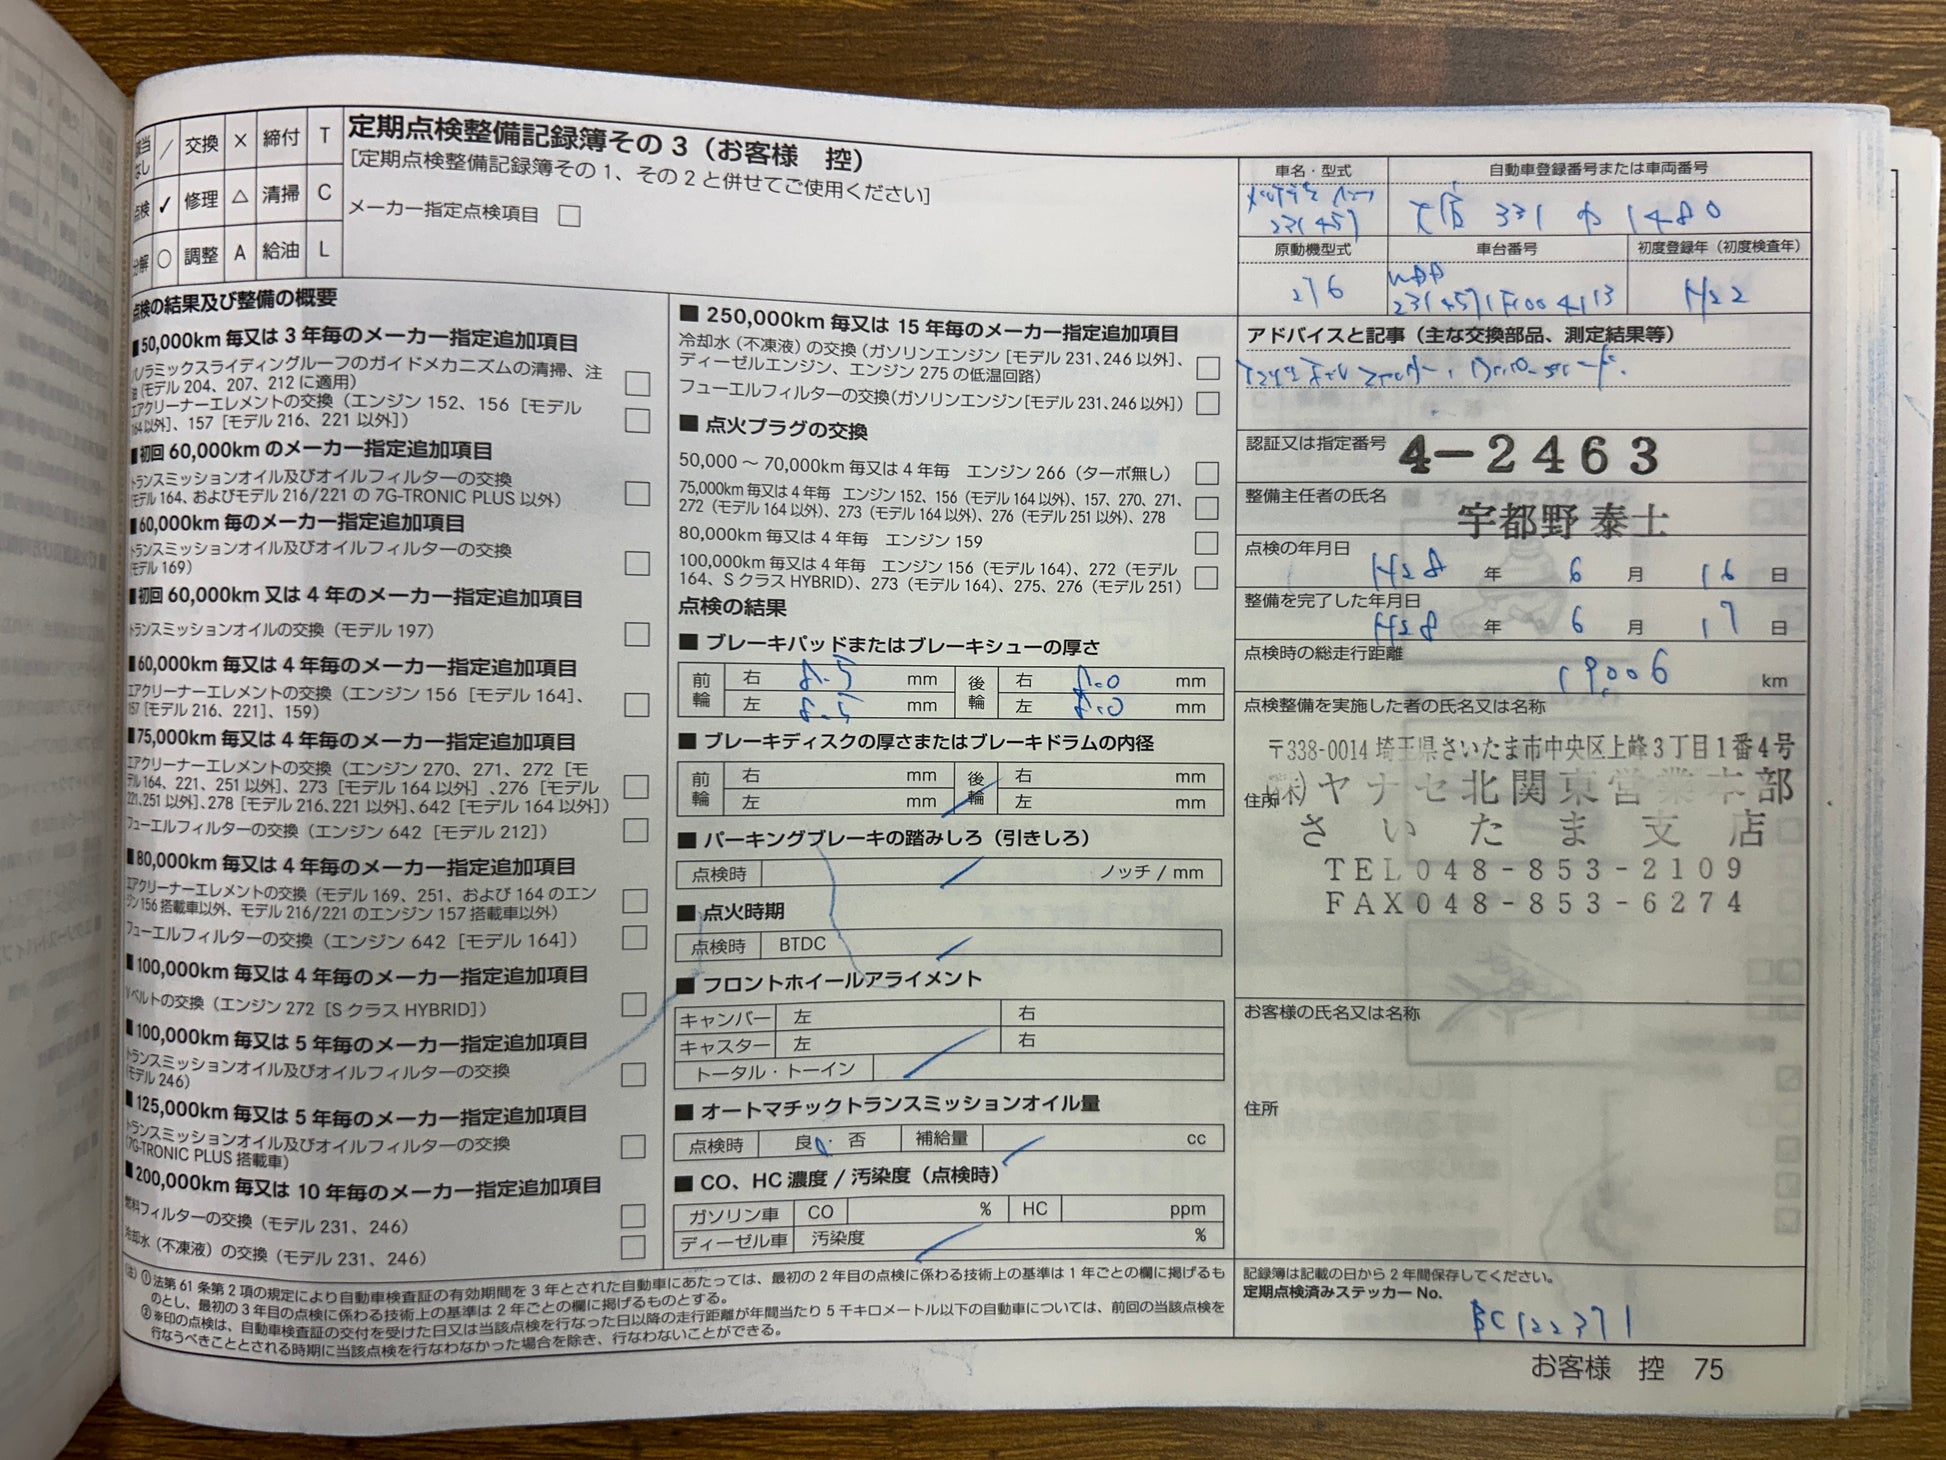 該当なし / 交換 × 締付 T
点検 ✓ 修理 △ 清掃 C
分解 ○ 調整 A 給油 L
定期点検整備記録簿その3（お客様　控）
[定期点検整備記録簿その1、その2と併せてご使用ください]
メーカー指定点検項目 □
点検の結果及び整備の概要
■50,000km毎又は3年毎のメーカー指定追加項目
パノラミックスライディングルーフのガイドメカニズムの清掃、注
油（モデル204、207、212に適用） □
エアクリーナーエレメントの交換（エンジン152、156［モデル
164以外］、157［モデル216、221以外］） □
■初回60,000kmのメーカー指定追加項目
トランスミッションオイル及びオイルフィルターの交換
（モデル164、およびモデル216/221の7G-TRONIC PLUS以外） □
■60,000km毎のメーカー指定追加項目
トランスミッションオイル及びオイルフィルターの交換
（モデル169） □
■初回60,000km又は4年毎のメーカー指定追加項目
トランスミッションオイルの交換（モデル197） □
■60,000km毎又は4年毎のメーカー指定追加項目
エアクリーナーエレメントの交換（エンジン156［モデル164］、
157［モデル216、221］、159） □
■75,000km毎又は4年毎のメーカー指定追加項目
エアクリーナーエレメントの交換（エンジン270、271、272［モ
デル164、221、251以外］、273［モデル164以外］、276［モデル
221、251以外］、278［モデル216、221以外］、642［モデル164以外］） □
フューエルフィルターの交換（エンジン642［モデル212］） □
■80,000km毎又は4年毎のメーカー指定追加項目
エアクリーナーエレメントの交換（モデル169、251、および164のエン
ジン156搭載車以外、モデル216/221のエンジン157搭載車以外） □
フューエルフィルターの交換（エンジン642［モデル164］） □
■100,000km毎又は4年毎のメーカー指定追加項目
Vベルトの交換（エンジン272［SクラスHYBRID］） □
■100,000km毎又は5年毎のメーカー指定追加項目
トランスミッションオイル及びオイルフィルターの交換
（モデル246） □
■125,000km毎又は5年毎のメーカー指定追加項目
トランスミッションオイル及びオイルフィルターの交換
（7G-TRONIC PLUS搭載車） □
■200,000km毎又は10年毎のメーカー指定追加項目
燃料フィルターの交換（モデル231、246） □
冷却水（不凍液）の交換（モデル231、246） □
■250,000km毎又は15年毎のメーカー指定追加項目
冷却水（不凍液）の交換（ガソリンエンジン［モデル231、246以外］、
ディーゼルエンジン、エンジン275の低温回路） □
フューエルフィルターの交換（ガソリンエンジン［モデル231、246以外］） □
■点火プラグの交換
50,000～70,000km毎又は4年毎　エンジン266（ターボ無し） □
75,000km毎又は4年毎　エンジン152、156（モデル164以外）、157、270、271、
272（モデル164以外）、273（モデル164以外）、276（モデル251以外）、278 □
80,000km毎又は4年毎　エンジン159 □
100,000km毎又は4年毎　エンジン156（モデル164）、272（モデル
164、SクラスHYBRID）、273（モデル164）、275、276（モデル251） □
点検の結果
■ブレーキパッドまたはブレーキシューの厚さ
前輪 右 8.5 mm 後輪 右 8.0 mm
左 8.5 mm 左 8.0 mm
■ブレーキディスクの厚さまたはブレーキドラムの内径
前輪 右 mm 後輪 右 mm
左 mm 左 mm
■パーキングブレーキの踏みしろ（引きしろ）
点検時 ノッチ / mm
■点火時期
点検時 BTDC
■フロントホイールアライメント
キャンバー 左 右
キャスター 左 右
トータル・トーイン
■オートマチックトランスミッションオイル量
点検時 良・否 補給量 cc
■CO、HC濃度 / 汚染度（点検時）
ガソリン車 CO % HC ppm
ディーゼル車 汚染度 %
車名・型式 自動車登録番号または車両番号
231457 331 1480
原動機型式 車台番号 初度登録年（初度検査年）
276 WDD H22
アドバイスと記事（主な交換部品、測定結果等）
認証又は指定番号 4-2463
整備主任者の氏名
宇都野 泰士
点検の年月日
H28 年 6 月 16 日
整備を完了した年月日
H28 年 6 月 17 日
点検時の総走行距離
19,006 km
点検整備を実施した者の氏名又は名称
〒338-0014 埼玉県さいたま市中央区上峰3丁目1番4号
住所 ㈱ヤナセ北関東営業本部
さいたま支店
TEL048-853-2109
FAX048-853-6274
お客様の氏名又は名称
住所
記録簿は記載の日から2年間保存してください。
定期点検済みステッカーNo.
BC122371
(注) ①法第61条第2項の規定により自動車検査証の有効期間を3年とされた自動車にあたっては、最初の2年目の点検に係わる技術上の基準は1年ごとの欄に掲げるも
のとし、最初の3年目の点検に係わる技術上の基準は2年ごとの欄に掲げるものとする。
②※印の点検は、自動車検査証の交付を受けた日又は当該点検を行なった日以降の走行距離が年間当たり5千キロメートル以下の自動車については、前回の当該点検を
行なうべきこととされる時期に当該点検を行なわなかった場合を除き、行なわないことができる。
お客様　控　75